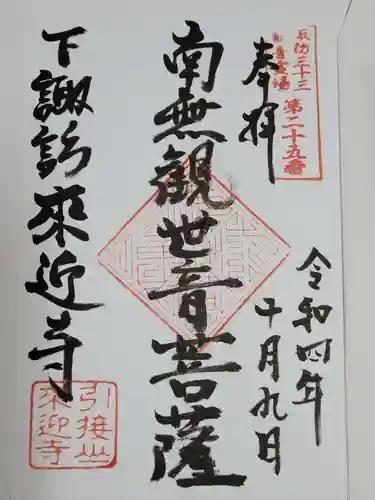 奉拝
諏訪三十三
観音霊場
第二十五番
令和四年
十月九日
南無觀世音菩薩
下諏訪來迎寺
引接山
来迎寺